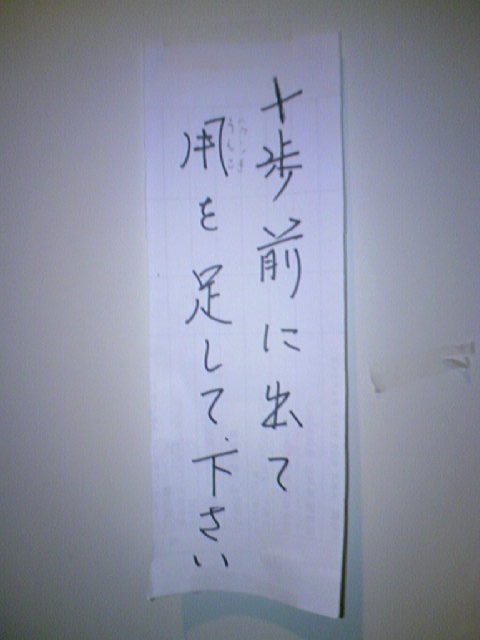 十歩前に出て
用を足して下さい
うんこ